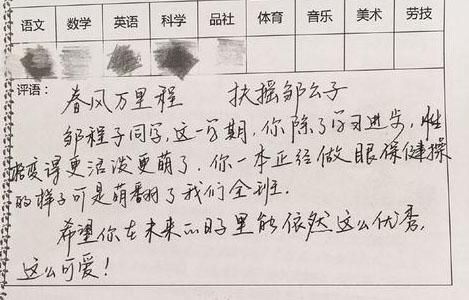 语文 数学 英语 科学 品社 体育 音乐 美术 劳技
评语：
春风万里程 扶摇邹公子
邹程子同学，这一学期，你除了学习进步，性
格变得更活泼更萌了，你一本正经做眼保健操
的样子可是萌翻了我们全班．
希望你在未来的日子里能依然这么优秀，
这么可爱！